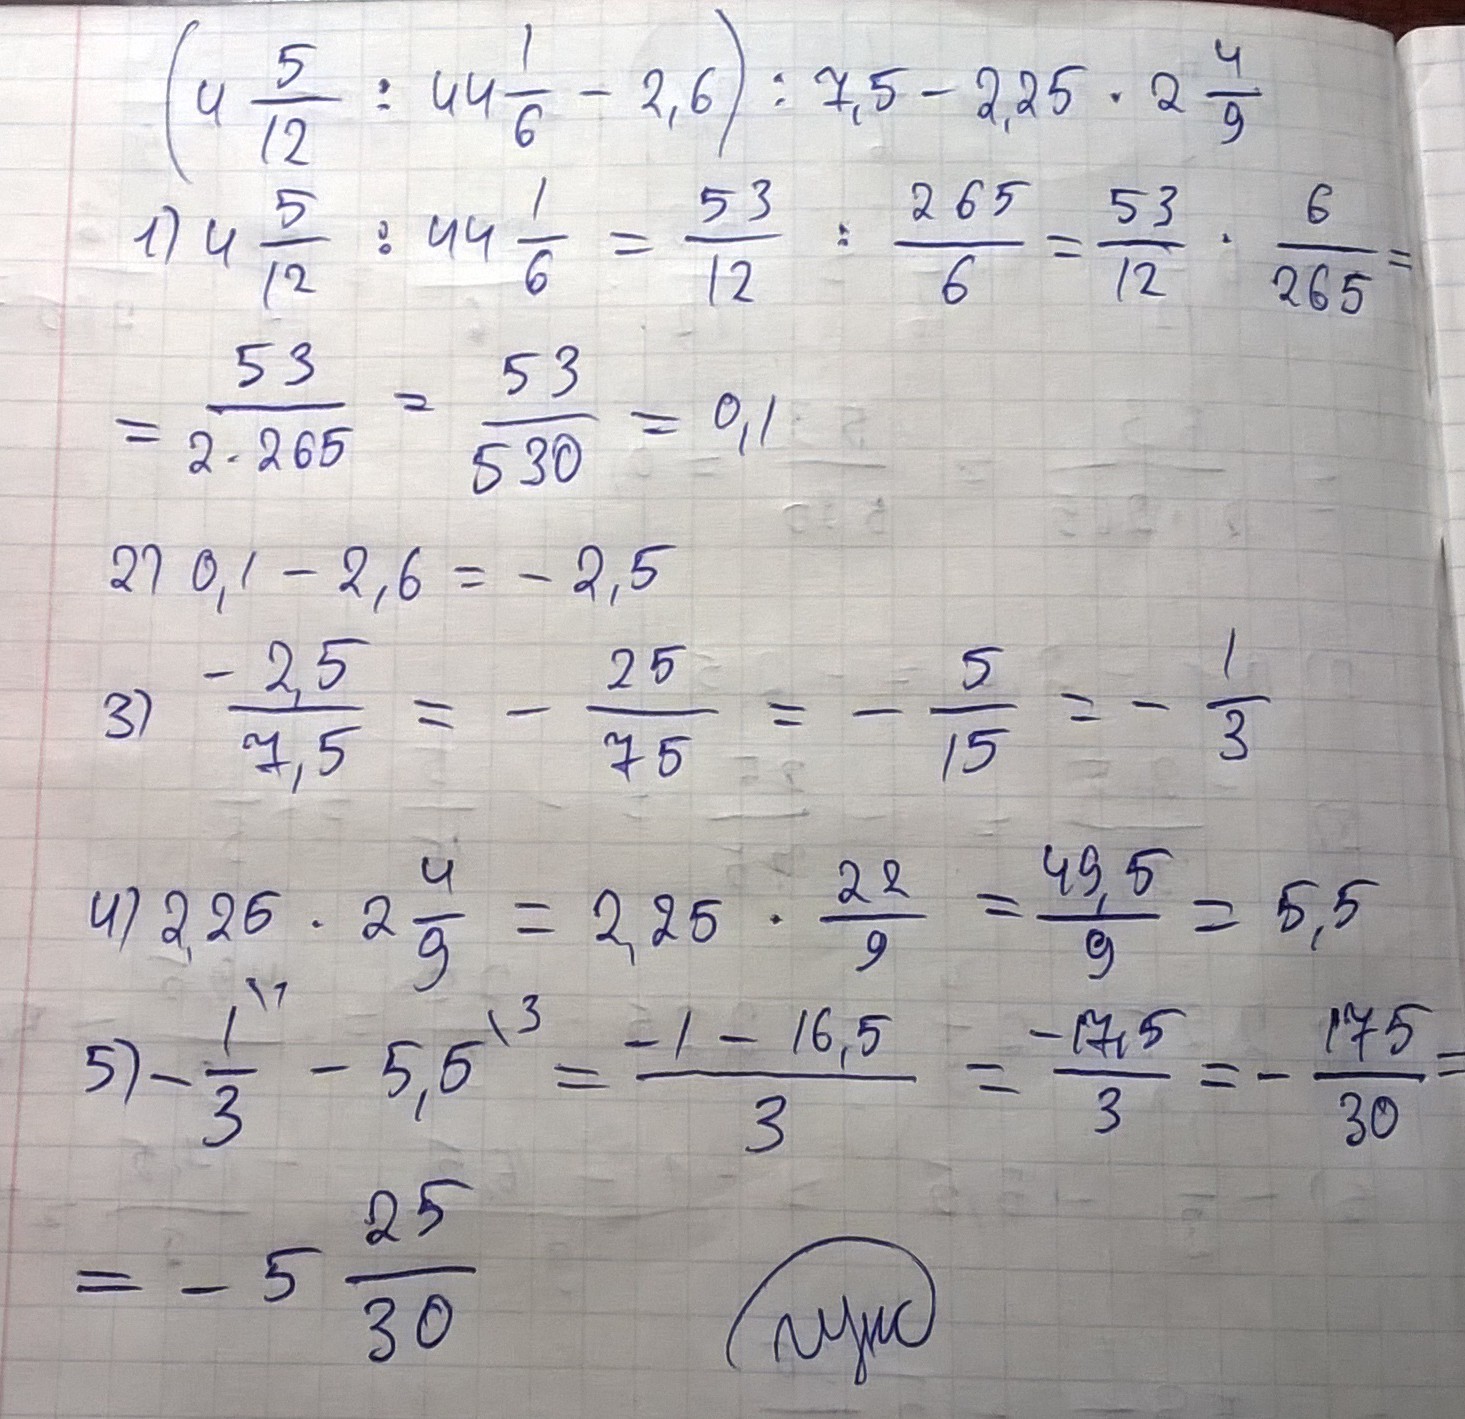 (4 5/12 : 44 1/6 - 2,6) : 7,5 - 2,25 · 2 4/9
1) 4 5/12 : 44 1/6 = 53/12 : 265/6 = 53/12 · 6/265 =
= 53/(2·265) = 53/530 = 0,1
2) 0,1 - 2,6 = - 2,5
3) -2,5/7,5 = - 25/75 = - 5/15 = - 1/3
4) 2,25 · 2 4/9 = 2,25 · 22/9 = 49,5/9 = 5,5
5) - 1/3 \1 - 5,5 \3 = (-1 - 16,5)/3 = -17,5/3 = - 175/30 =
= - 5 25/30